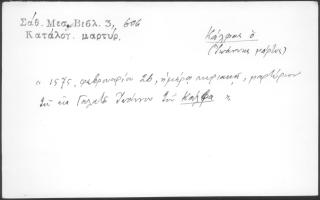 Σάθ. Μεσ. Βιβλ. 3, 606
Κατάλογ. μαρτυρ.
Κάλφας ὁ
(Ἰωάννης μάρτυς)
" 1575, φεβρουαρίου 26, ἡμέρᾳ κυριακῇ, μαρτύριον
τοῦ ἐκ Γαλατᾶ Ἰωάννου τοῦ Κάλφα "